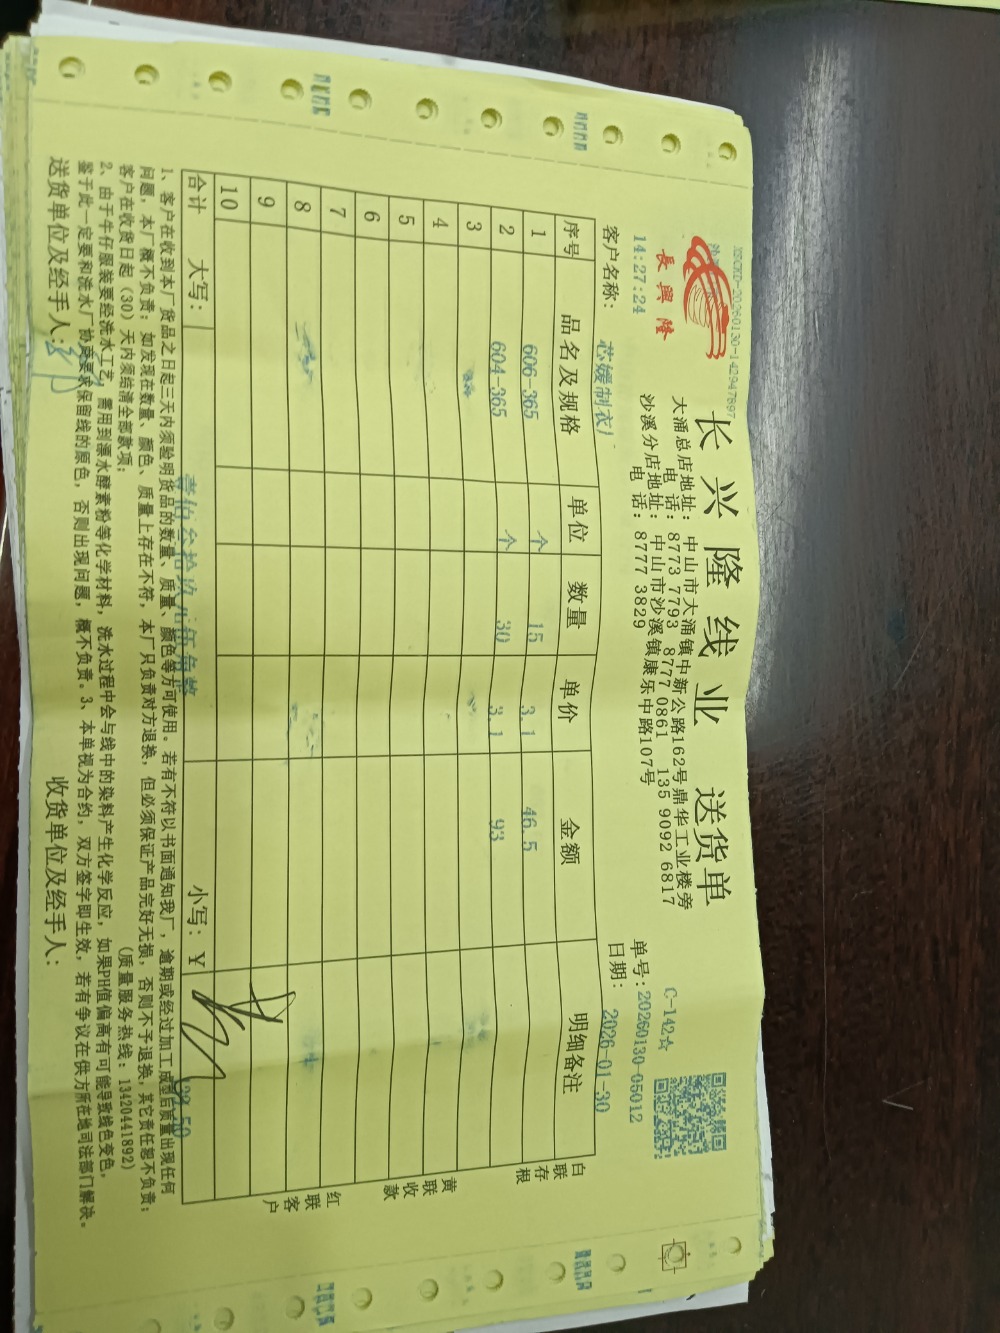 XSCKD-20260130-142947897
长兴隆线业 送货单
長興隆
C-142☆
大涌总店地址：中山市大涌镇中新公路162号鼎华工业楼旁
电话：8773 7793 8777 0861 135 9092 6817
沙溪分店地址：中山市沙溪镇康乐中路107号
电话：8777 3829
14:27:24
单号：20260130-05012
客户名称：芯媛制衣厂
日期：2026-01-30
序号 品名及规格 单位 数量 单价 金额 明细备注
1 606-365 个 15 3.1 46.5
2 604-365 个 30 3.1 93
3
4
5
6
7
8
9
10
合计 大写：壹佰叁拾玖元伍角整 小写：￥
白联存根
黄联收款
红联客户
1、客户在收到本厂货品之日起三天内须验明货品的数量、质量、颜色等方可使用。若有不符以书面通知我厂，逾期或经过加工成型后质量出现任何
问题，本厂概不负责；如发现在数量、颜色、质量上存在不符，本厂只负责对方退换，但必须保证产品完好无损，否则不予退换，其它责任恕不负责；
客户在收货日起（30）天内须结清全部款项；
（质量服务热线：13420441892）
2、由于牛仔服装要经洗水工艺，需用到漂水酵素粉等化学材料，洗水过程中会与线中的染料产生化学反应，如果PH值偏高有可能导致线色变色，
鉴于此一定要和洗水厂协商要求保留线的原色，否则出现问题，概不负责。3、本单视为合约，双方签字即生效，若有争议在供方所在地司法部门解决。
送货单位及经手人：
收货单位及经手人：